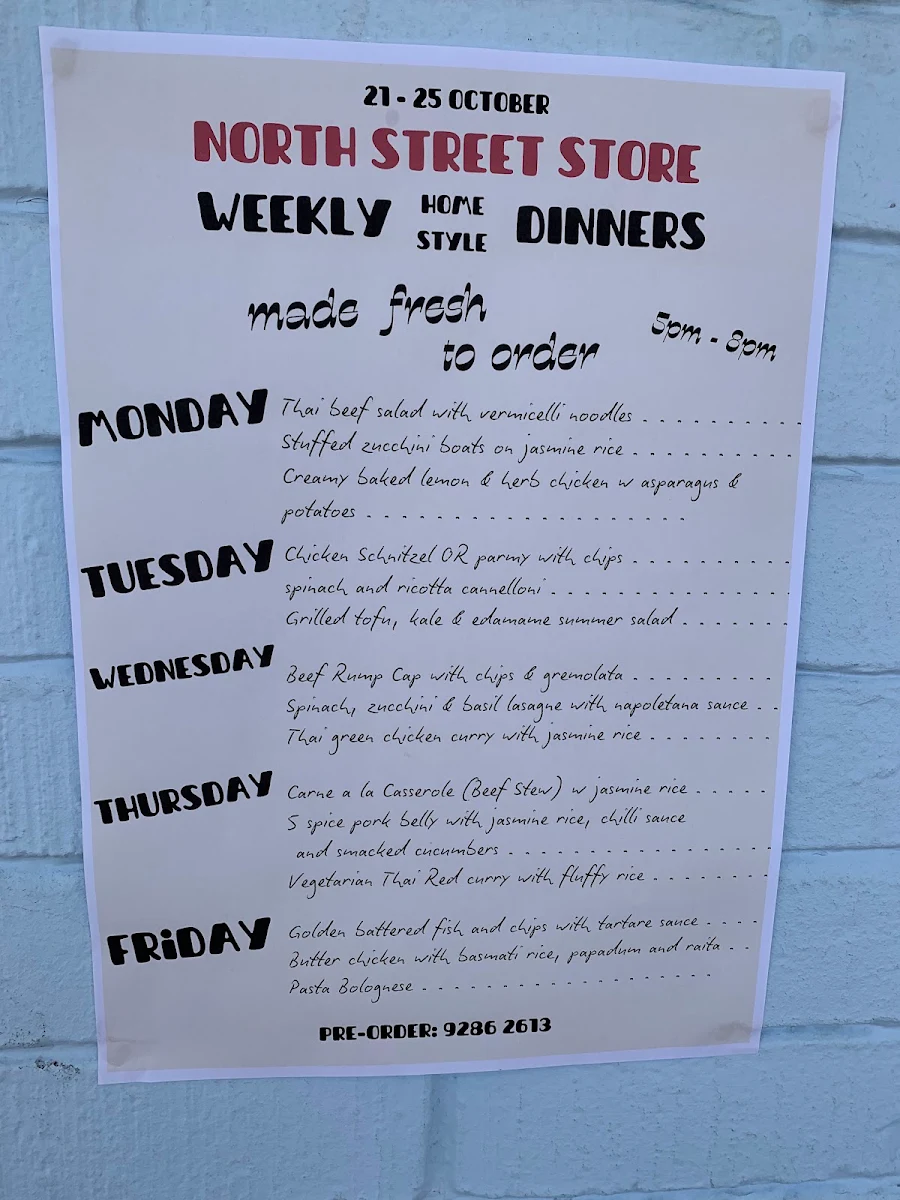 21 - 25 OCTOBER
NORTH STREET STORE
WEEKLY HOME STYLE DINNERS
made fresh
to order
5pm - 8pm
MONDAY
Thai beef salad with vermicelli noodles . . . . . . . . . .
Stuffed zucchini boats on jasmine rice . . . . . . . . . .
Creamy baked lemon & herb chicken w asparagus &
potatoes . . . . . . . . . . . . . . . . . . .
TUESDAY
Chicken Schnitzel OR parmy with chips . . . . . . . . . .
spinach and ricotta cannelloni . . . . . . . . . . . . . .
Grilled tofu, kale & edamame summer salad . . . . . . .
WEDNESDAY
Beef Rump Cap with chips & gremolata . . . . . . . . .
Spinach, zucchini & basil lasagne with napoletana sauce . .
Thai green chicken curry with jasmine rice . . . . . . . .
THURSDAY
Carne a la Casserole (Beef Stew) w jasmine rice . . . . .
5 spice pork belly with jasmine rice, chilli sauce
and smacked cucumbers . . . . . . . . . . . . . . . .
Vegetarian Thai Red curry with fluffy rice . . . . . . .
FRiDAY
Golden battered fish and chips with tartare sauce . . . .
Butter chicken with basmati rice, papadum and raita . .
Pasta Bolognese . . . . . . . . . . . . . . . . . .
PRE-ORDER: 9286 2613